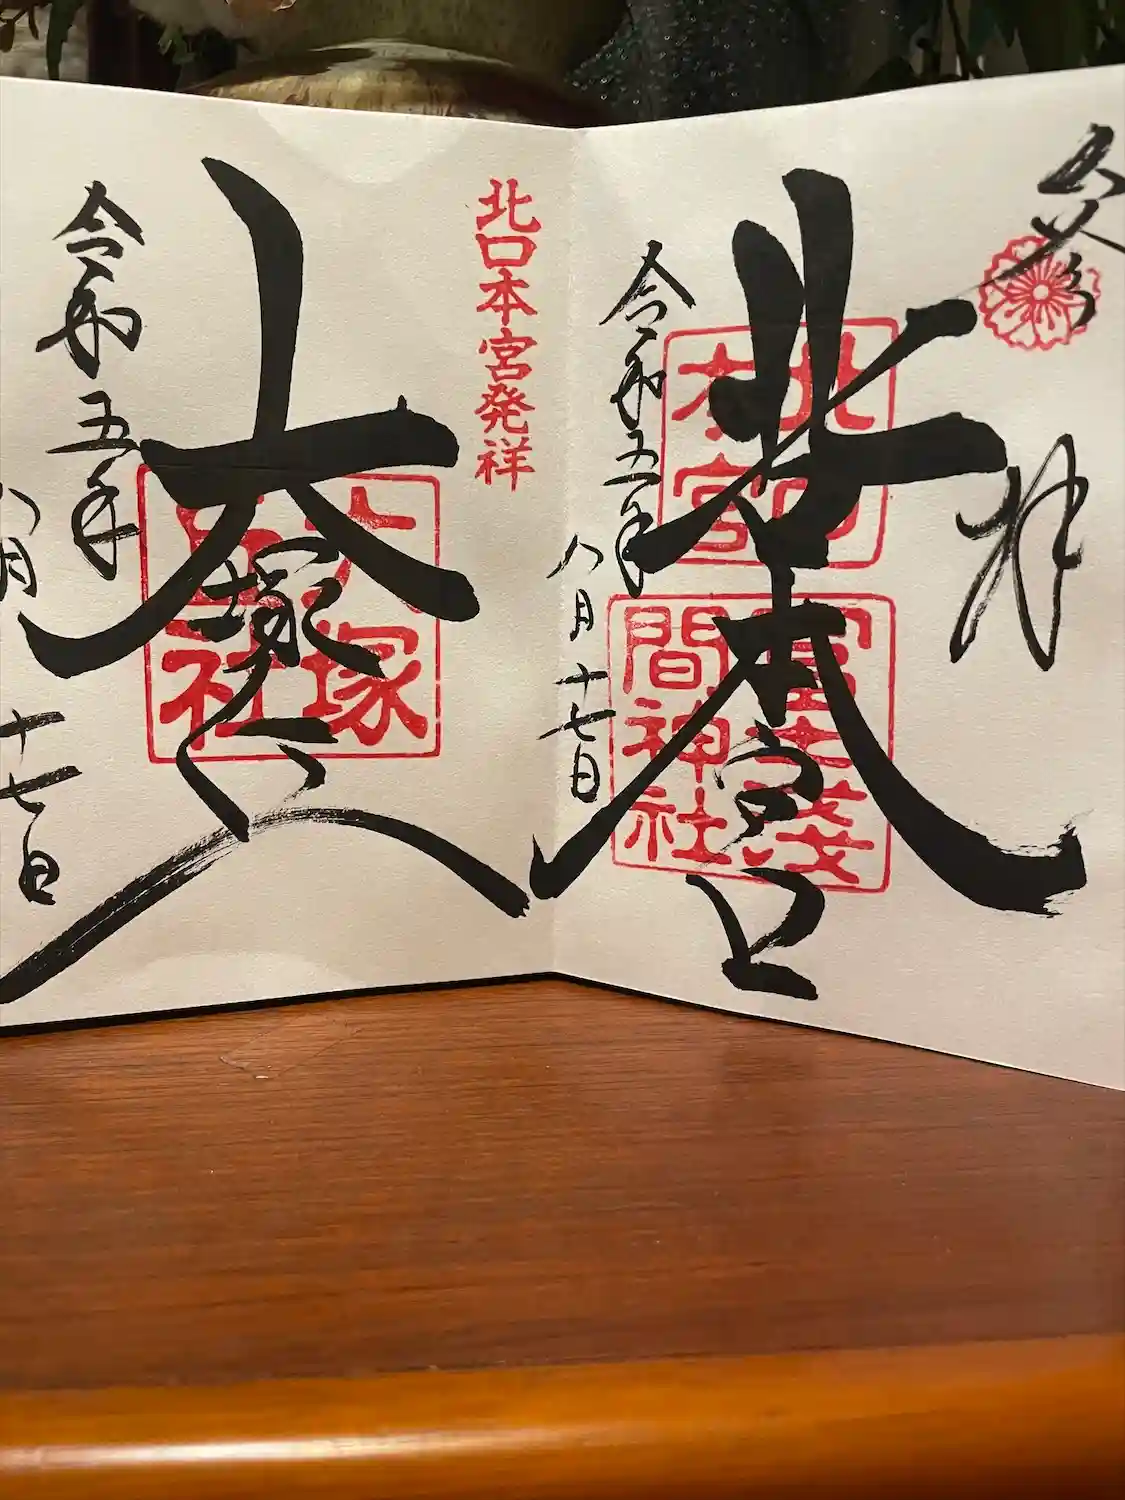 拝
北口本宮
北口本宮
冨士淺間神社
令和五年
八月十七日
北口本宮発祥
大塚丘
大塚丘社
令和五年
八月
十七日